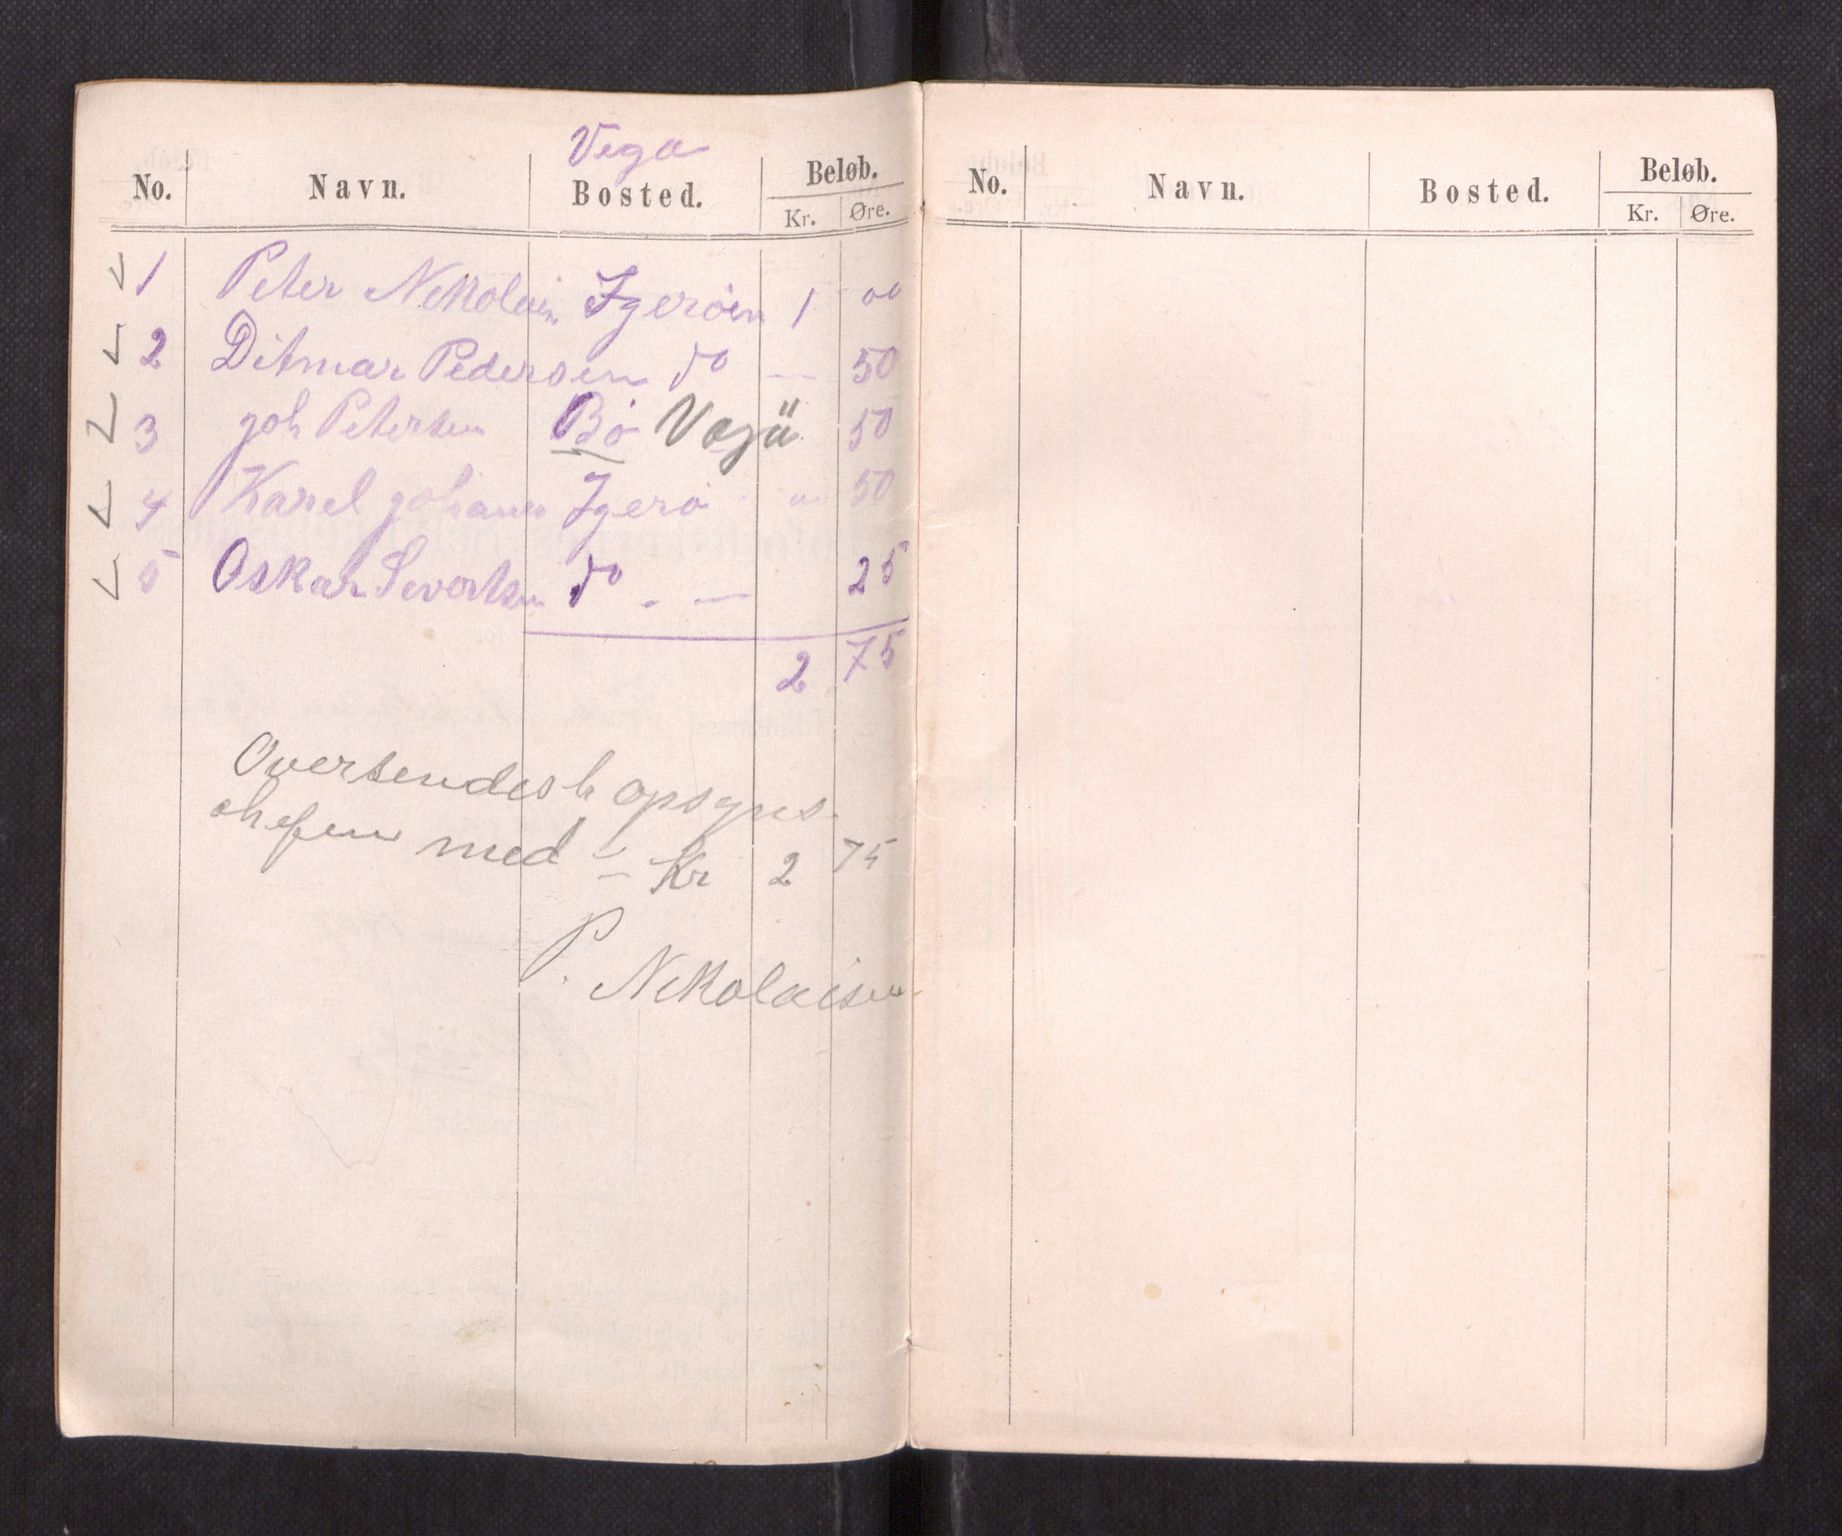 Vega
No. Navn. Bosted. Beløb.
Kr. Øre.
1 Peter Nikolain Igerøen 1 00
2 Ditmar Pedersen do — 50
3 joh Petersen Bø Vegø 50
4 Karel johans Igerø " 50
5 Oskar Sevortsen do . — 25
2 75
Oversendes h opsyns
chefen med = Kr 2 75
P. Nikolaisen
No. Navn. Bosted. Beløb.
Kr. Øre.